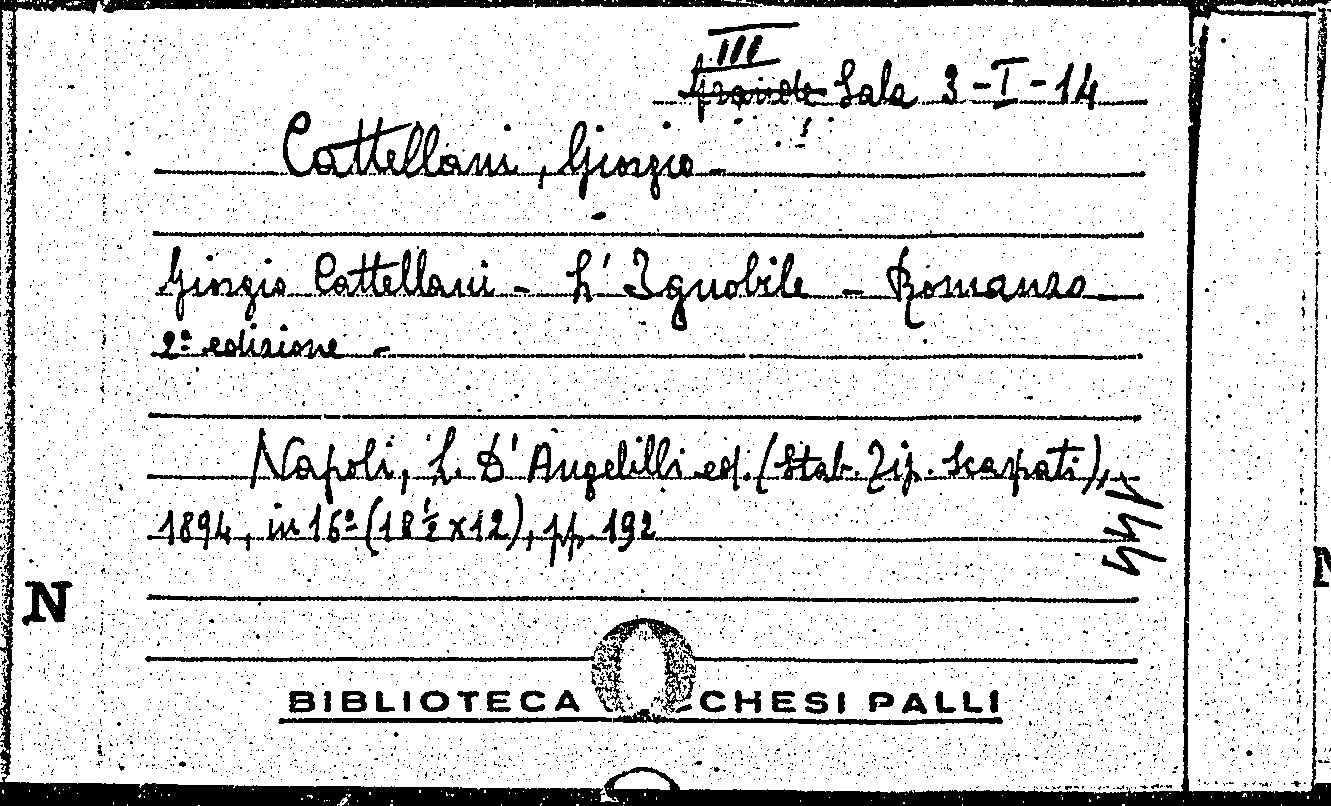 III
grande Sala 3-I-14
Cattellani, Giorgio -
Giorgio Cattellani - L'Ignobile - Romanzo
2ª edizione -
Napoli, L. D'Angelilli ed. (Stab. Tip. Scarpati),
1894, in 16º (18½x12), pp. 192
N
BIBLIOTECA CHESI PALLI